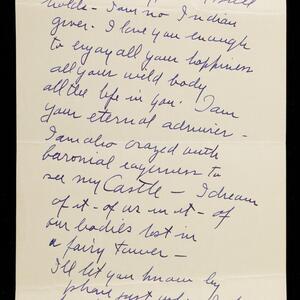 holds - I am no Indian
giver. I love you enough
to enjoy all your happiness
all your wild body
all the life in you. I am
your eternal admirer -
I am also crazed with
baronial eagerness to
see my Castle - I dream
of it - of us in it - of
our bodies lost in
a fairy tower -
I'll let you know by
phone just